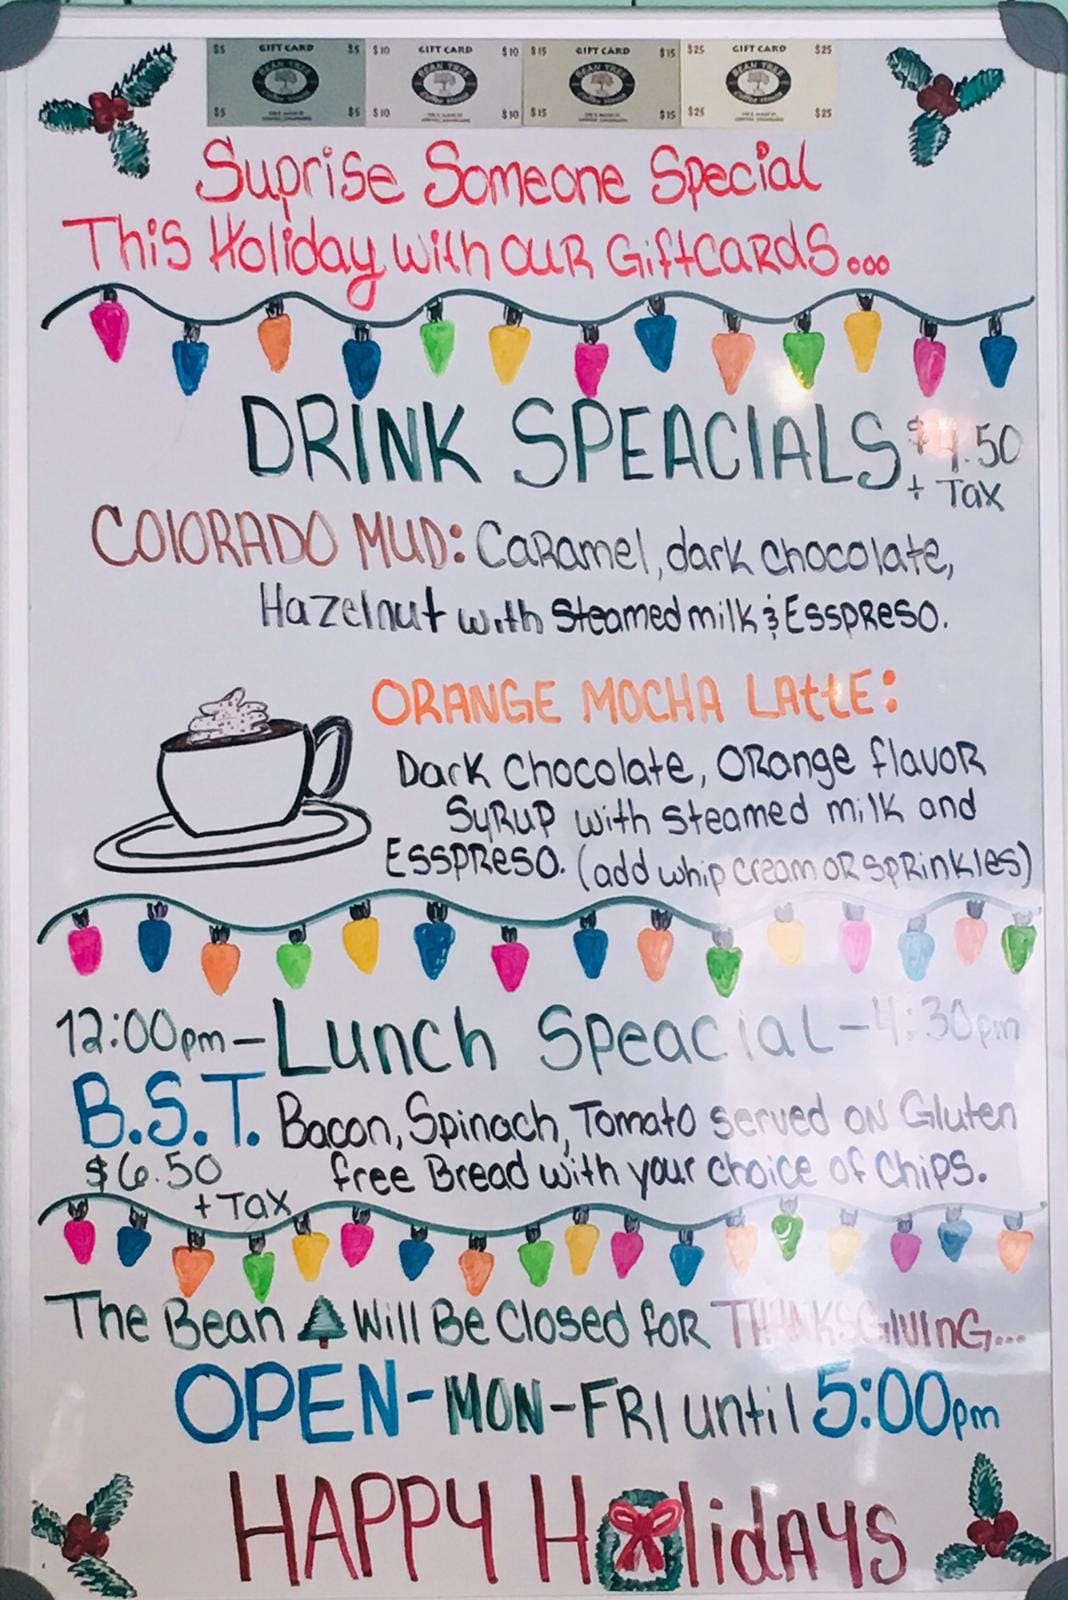 $5 GIFT CARD $5 $10 GIFT CARD $10 $15 GIFT CARD $15 $25 GIFT CARD $25
BEAN TREE BEAN TREE BEAN TREE BEAN TREE
Coffee House Coffee House Coffee House Coffee House
$5 $5 $10 $10 $15 $15 $25 $25
Suprise Someone Special
This Holiday with our Giftcards...
DRINK SPEACIALS $4.50
+ Tax
COlORADO MUD: Caramel, dark chocolate,
Hazelnut with Steamed milk & Esspreso.
ORANGE MOCHA LAttE:
Dark Chocolate, Orange flavor
Syrup with steamed milk and
Esspreso. (add whip cream or sprinkles)
12:00pm - Lunch Speacial - 4:30pm
B.S.T. Bacon, Spinach, Tomato served on Gluten
$6.50 free Bread with your choice of Chips.
+ Tax
The Bean Will Be Closed for THANKSGIVING...
OPEN-MON-FRI until 5:00pm
HAPPY HlidAYS